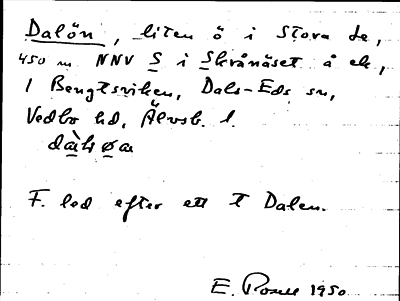 Dalön, liten ö i Stora Le,
450 m NNV S i Skrånäset å ek,
1 Bengtsviken, Dals-Eds sn,
Vedbo hd, Älvsb. l.
F. led efter ett † Dalen.
E. 1950